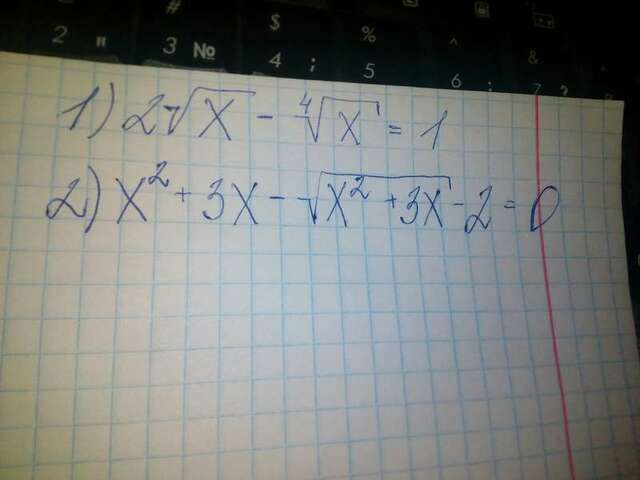 # $ % ^ &
2 " 3 № 4 ; 5 6 : 7 ?
1) 2√x - ∜x = 1
2) x² + 3x - √(x² + 3x) - 2 = 0